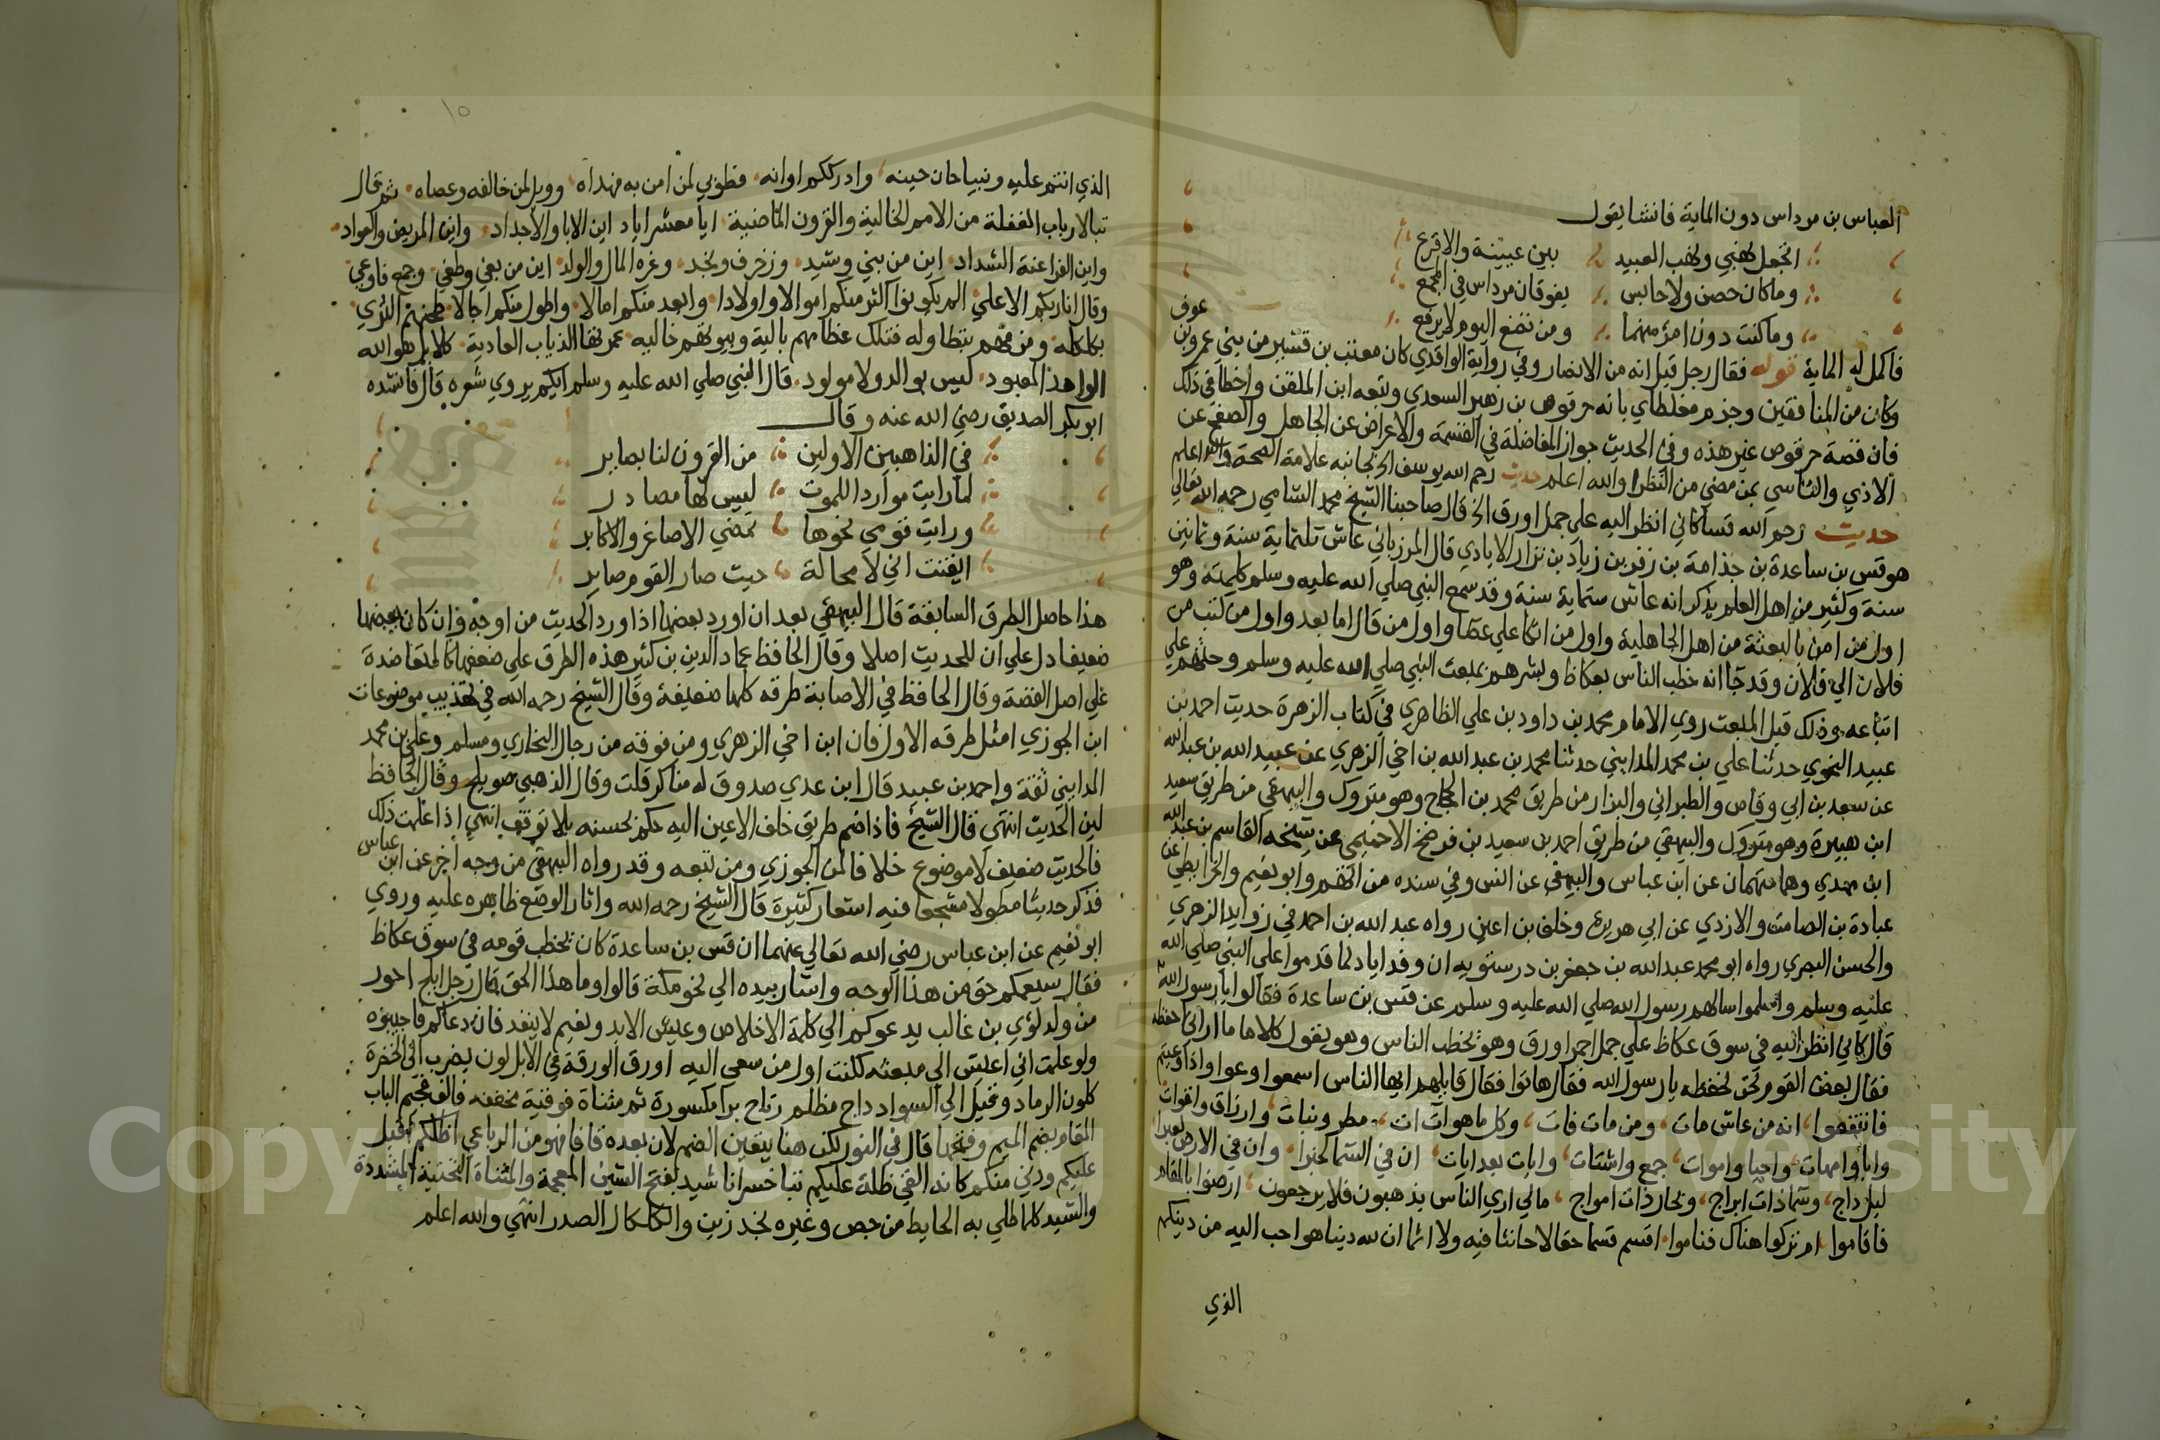 العباس بن مرداس دون الماية فانشا يقول
اتجعل نهبي ونهب العبيد بين عيينة والاقرع
وما كان حصن ولا حابس يفوقان مرداس في المجمع
وما كنت دون امرء منهما ومن تضع اليوم لا يرفع
فاكمل له الماية قوله فقال رجل قيل انه من الانصار وفي رواية الواقدي كان معتب بن قشير من بني عمرو بن عوف
وكان من المنافقين وجزم مغلطاي بانه حرقوص بن زهير السعدي وتبعه ابن الملقن واخطا في ذلك
فان قصة حرقوص غير هذه وفي الحديث جواز المفاضلة في القسمة والاعراض عن الجاهل والصفح عن
الاذي والتاسي بمن مضي من النظرا والله اعلم حديث رحم الله يوسف الخ بجانبه علامة الصحة والله اعلم
حديث رحم الله قسا كاني انظر اليه علي جمل اورق الخ قال صاحبنا الشيخ محمد الشامي رحمه الله تعالي
هو قس بن ساعدة بن جذامة بن زفر بن زياد بن نزار الايادي قال المرزباني عاش ثلثماية سنة وثمانين
سنة وكثير من اهل العلم يذكر انه عاش ستماية سنة وقد سمع النبي صلي الله عليه وسلم كلمته وهو
اول من امن بالبعثة من اهل الجاهلية واول من اتكا علي عصا واول من قال اما بعد واول من كتب من
فلان الي فلان وقد جا انه خطب الناس بعكاظ وبشرهم بمبعث النبي صلي الله عليه وسلم وحثهم علي
اتباعه وذلك قبل المبعث روي الامام محمد بن داود بن علي الظاهري في كتاب الزهرة حديث احمد بن
عبيد النحوي حدثنا علي بن محمد المدايني حدثنا محمد بن عبد الله بن اخي الزهري عن عبيد الله بن عبد الله
عن سعد بن ابي وقاص والطبراني والبزار من طريق محمد بن الحجاج وهو متروك والبيهقي من طريق سعيد
ابن هبيرة وهو متروك والبيهقي من طريق احمد بن سعيد بن فرضخ الاخميمي عن شيخه القاسم بن عبد الله
ابن مهدي وهما متهمان عن ابن عباس والبيهقي عن انس وفي سنده من اتهم وابو نعيم والخرايطي عن
عبادة بن الصامت والازدي عن ابي هريرة وخلف بن اعين رواه عبد الله بن احمد في زوايد الزهري
والحسن البصري رواه ابو محمد عبد الله بن جعفر بن درستويه ان وفد اياد لما قدموا علي النبي صلي الله
عليه وسلم واسلموا سالهم رسول الله صلي الله عليه وسلم عن قس بن ساعدة فقالوا يا رسول الله
قال كاني انظر اليه في سوق عكاظ علي جمل احمر اورق وهو يخطب الناس وهو يقول كلاما ما اراني احفظه
فقال بعض القوم نحن نحفظه يا رسول الله فقال هاتوا فقال قايلهم ايها الناس اسمعوا وعوا واذا وعيتم
فانتفعوا انه من عاش مات ومن مات فات وكل ما هو آت ات مطر ونبات وارزاق واقوات
وابا وامهات واحيا واموات جمع واشتات وايات بعد ايات ان في السما لخبرا وان في الارض لعبرا
ليل داج وسما ذات ابراج وبحار ذات امواج مالي اري الناس يذهبون فلا يرجعون ارضوا بالمقام
فاقاموا ام تركوا هناك فناموا اقسم قسما حقا لا حانثا فيه ولا اثما ان لله دينا هو احب اليه من دينكم
الذي
١٥
الذي انتم عليه ونبيا حان حينه وادرككم اوانه فطوبي لمن امن به فهداه وويل لمن خالفه وعصاه ثم قال
تبا لارباب الغفلة من الامم الخالية والقرون الماضية ايا معشر اياد اين الابا والاجداد واين المريض والعواد
واين الفراعنة الشداد اين من بني وشيد وزخرف ونجد وغره المال والولد اين من بغي وطغي وجمع فاوعي
وقال انا ربكم الاعلي الم يكونوا اكثر منكم اموالا واولادا وابعد منكم امالا واطول منكم اجالا طحنهم الثري
بكلكله ومزقهم بتطاوله فتلك عظامهم بالية وبيوتهم خالية عمرتها الذياب العادية كلا بل هو الله
الواحد المعبود ليس بوالد ولا مولود قال النبي صلي الله عليه وسلم ايكم يروي شعره قال فانشده
ابو بكر الصديق رضي الله عنه وقال
في الذاهبين الاولين من القرون لنا بصاير
لما رايت مواردا للموت ليس لها مصادر
ورايت قومي نحوها تمضي الاصاغر والاكابر
ايقنت اني لا محالة حيث صار القوم صاير
هذا حاصل الطرق السابقة قال البيهقي بعد ان اورد بعضها اذا ورد الحديث من اوجه وان كان بعضها
ضعيفا دل علي ان للحديث اصلا وقال الحافظ عماد الدين بن كثير هذه الطرق علي ضعفها كالمتعاضدة
علي اصل القصة وقال الحافظ في الاصابة طرقه كلها ضعيفة وقال الشيخ رحمه الله في تهذيب موضوعات
ابن الجوزي امثل طرقه الاول فان ابن اخي الزهري ومن فوقه من رجال البخاري ومسلم وعلي بن محمد
المدايني ثقة واحمد بن عبيد قال ابن عدي صدوق له مناكر قلت وقال الذهبي صويلح وقال الحافظ
لين الحديث انتهي قال الشيخ فاذا ضم طريق خلف الاعين اليه حكم بحسنه بلا توقف انتهي اذا علمت ذلك
فالحديث ضعيف لا موضوع خلافا لابن الجوزي ومن تبعه وقد رواه البيهقي من وجه اخر عن ابن عباس
فذكر حديثا مطولا مسجعا فيه اشعار كثيرة قال الشيخ رحمه الله واثار الوضع ظاهره عليه وروي
ابو نعيم عن ابن عباس رضي الله تعالي عنهما ان قس بن ساعدة كان يخطب قومه في سوق عكاظ
فقال سيعمكم حق من هذا الوجه واشار بيده الي نحو مكة قالوا وما هذا الحق قال رجل ابلج احور
من ولد لؤي بن غالب يدعوكم الي كلمة الاخلاص وعيش الابد ونعيم لا ينفد فان دعاكم فاجيبوه
ولو علمت اني اعيش الي مبعثه لكنت اول من سعي اليه اورق الورقة في الابل لون يضرب الي الخضرة
كلون الرماد وتخيل الي السواد داج مظلم رتاج برا مكسورة ثم مثناة فوقية مخففه فالف فجيم الباب
المقام بضم الميم وفتحها قال في النور لكن هنا يتعين الضم لان بعده فاقاموا فهو من الرباعي اظلكم اقبل
عليكم ودني منكم كانه القي ظلة عليكم تبا خسرانا شيد بفتح الشين المعجمة والمثناة التحتية المشددة
والشيد كلما طلي به الحايط من جص وغيره نجد زين والكلكل الصدر انتهي والله اعلم
Copyright © King Saud University